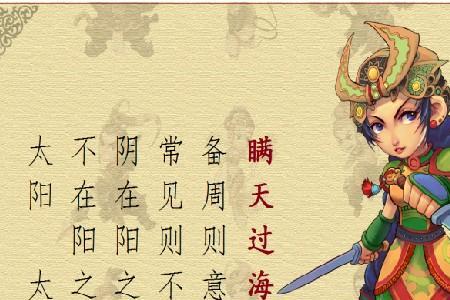 瞒天过海
备周则意
常见则不
阴在阳之
不在阳之
太阳 太